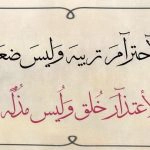 لأحترام تربيه وليس ضع
لأعتذار خلق وليس مذله